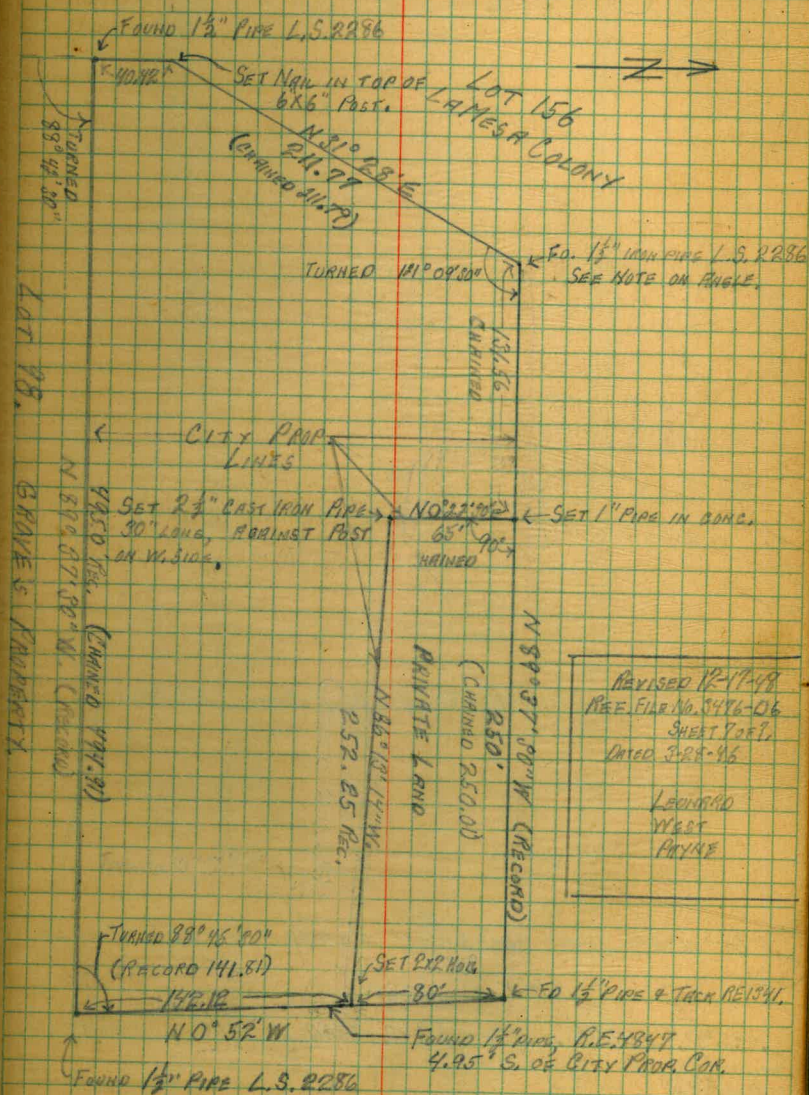 FOUND 1½" PIPE L.S. 2286
40.42
SET NAIL IN TOP OF
6X6" POST.
LOT 156
LA MESA COLONY
TURNED
88° 42' 30"
N31° 28' E
211.77
(CHAINED 211.79)
TURNED 121° 09' 30"
FD. 1½" IRON PIPE L.S. 2286
SEE NOTE ON ANGLE.
131.56
CHAINED
CITY PROP.
LINES
SET 2½" CAST IRON PIPE
30" LONG, AGAINST POST
ON W. SIDE.
65'
90°
SET 1" PIPE IN CONC.
LOT 98.
GROVE'S PROPERTY.
REC. (CHAINED 494.91)
(RECORD)
252.25 REC.
PRIVATE LAND
250'
(CHAINED 250.00)
N 89° 37' 20" W (RECORD)
REVISED 12-17-48
REF. FILE NO. 3476-D6
SHEET 7 OF 7.
DATED 3-28-46
LEONARD
WEST
PAYNE
TURNED 88° 46' 30"
(RECORD 141.81)
142.12
N 0° 52' W
SET 2X2 HUB.
80'
FD 1½" PIPE & TACK RE1341.
FOUND 1½" PIPE, R.E. 4847
4.95' S. OF CITY PROP. COR.
FOUND 1½" PIPE L.S. 2286